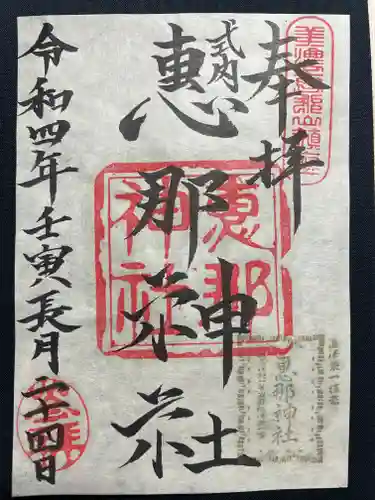 奉拝
式内
恵那神社
令和四年壬寅長月二十四日
恵那神社
恵那神社